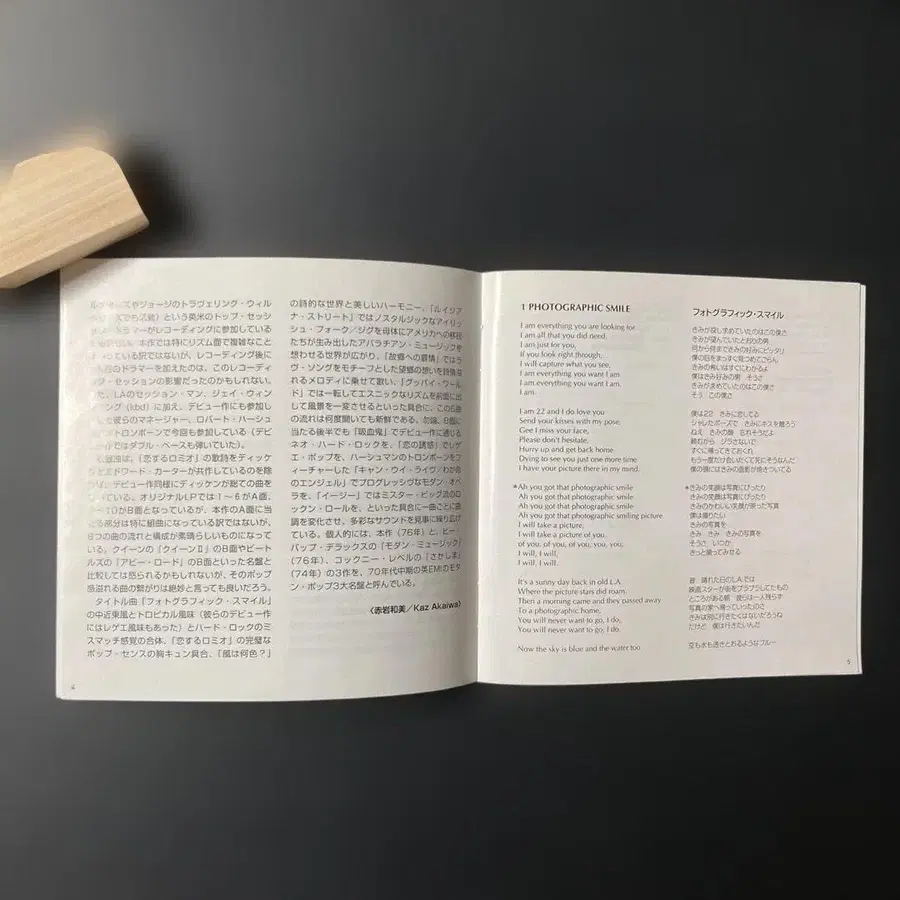 ルベリーズやジョージのトラヴェリング・ウィル
という英米のトップ・セッシ
ラマーがレコーディングに参加している
本作では特にリズム面で複雑なこと
っている訳ではないが、レコーディング後に
のドラマーを加えたのは、このレコーディ
グ・セッションの影響だったのかもしれない。
た、LAのセッション・マン、ジェイ・ウィン
ング (kbd) に加え、デビュー作にも参加し
た彼らのマネージャー、ロバート・ハーシュ
トロンボーンで今回も参加している（デビ
ではダブル・ベースも弾いていた）。
は、《恋するロミオ》の歌詩をディケッ
エドワード・カーターが共作しているのを除
、デビュー作同様にディッケンが総ての曲を
いている。オリジナルLPでは1〜6がA面、
〜10がB面となっているが、本作のA面に当
る部分は特に組曲になっている訳ではないが、
6つの曲の流れと構成が素晴らしいものになって
いる。クイーンの『クイーンⅡ』のB面やビートル
ズの『アビー・ロード』のB面といった名盤と
比較しては怒られるかもしれないが、そのポップ
感溢れる曲の繋がりは絶妙と言っても良いだろう。
タイトル曲「フォトグラフィック・スマイル」
の中近東風とトロピカル風味（彼らのデビュー作
にはレゲエ風味もあった）とハード・ロックのミ
スマッチ感覚の合体、「恋するロミオ」の完璧な
ポップ・センスの胸キュン具合、「風は何色？」
4
の詩的な世界と美しいハーモニー、「ルイジア
ナ・ストリート」ではノスタルジックなアイリッ
シュ・フォーク／ジグを母体にアメリカへの移民
たちが生み出したアパラチアン・ミュージックを
想わせる世界が広がり、「故郷への慕情」ではラ
ヴ・ソングをモチーフとした望郷の想いを詩情溢
れるメロディに乗せて歌い、「グッバイ・ワール
ド」では一転してエスニックなリズムを前面に出
して風景を一変させるといった具合に、この6曲
の流れは何度聞いても新鮮である。勿論、B面に
当たる後半でも「吸血鬼」でデビュー作に通じる
ネオ・ハード・ロックを、「恋の誘惑」でレゲ
エ・ポップを、ハーシュマンのトロンボーンをフ
ィーチャーした「キャン・ウイ・ライヴ／わが命
のエンジェル」でプログレッシヴなモダン・オペ
ラを、「イージー」ではミスター・ビッグ流のロ
ックン・ロールを、といった具合に一曲ごとに曲
調を変化させ、多彩なサウンドを見事に繰り広げ
ている。個人的には、本作（76年）と、ビー・
バップ・デラックスの『モダン・ミュージック』
（76年）、コックニー・レベルの『さかしま』
（74年）の3作を、70年代中期の英EMIのモダ
ン・ポップ3大名盤と呼んでいる。
〈赤岩和美／Kaz Akaiwa〉
1 PHOTOGRAPHIC SMILE
I am everything you are looking for
I am all that you did need.
I am just for you,
If you look right through,
I will capture what you see,
I am everything you want I am
I am everything you want I am.
I am.
I am 22 and I do love you
Send your kisses with my pose.
Gee I miss your face,
Please don't hesitate.
Hurry up and get back home
Dying to see you just one more time
I have your picture there in my mind.
*Ah you got that photographic smile
Ah you got that photographic smile
Ah you got that photographic smile
Ah you got that photographic smiling picture
I will take a picture,
I will take a picture of you.
of you, of you, of you, you, you,
I will, I will,
I will, I will.
It's a sunny day back in old L.A.
Where the picture stars did roam.
Then a morning came and they passed away
To a photographic home.
You will never want to go, I do,
You will never want to go, I do.
Now the sky is blue and the water too
フォトグラフィック・スマイル
きみが探し求めていたのはこの僕さ
きみが望んでいたとおりの男
何から何まできみの好みにピッタリ
僕の目をまっすぐ見つめてごらん
きみの思いはすぐにわかるよ
僕はきみ好みの男 そうさ
きみが求めていたのはこの僕さ
そう この僕さ
僕は22 きみに恋してる
シャレたポーズで きみにキスを贈ろう
ねえ きみの顔 忘れそうだよ
頼むから ジラさないで
すぐに帰ってきておくれ
もう一度だけ会いたくて死にそうなんだ
僕の頭にはきみの面影が焼きついてる
*きみの笑顔は写真にぴったり
きみの笑顔は写真にぴったり
きみのかわいい笑顔が映った写真
僕は撮りたい
きみの写真を
きみ きみ きみの写真を
そうさ いつか
きっと撮ってみせる
昔 晴れた日のL.A.では
映画スターが街をブラブラしたもの
ところがある朝 彼らは一人残らず
写真の家へ帰っていったのさ
きみは別に行きたくはないだろうね
だけど 僕は行きたいんだ
空も水も透きとおるようなブルー
5